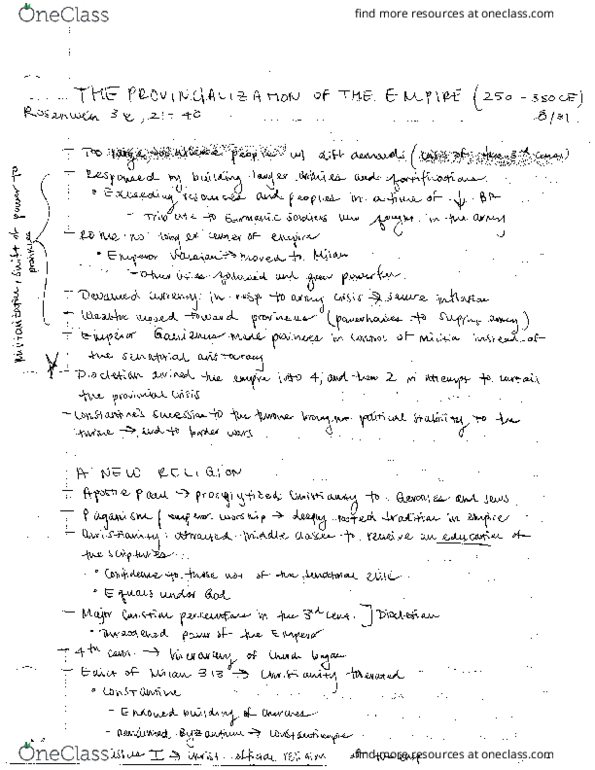 OneClass
find more resources at oneclass.com
THE PROVINCIALIZATION OF THE EMPIRE (250 - 350 CE)
Rosenwein 3rd, 21-40
8/31
- Too large to people w/ diff demands (crisis of the 3rd century)
- Responded by building larger armies and fortifications
• Exceeding resources and peoples in a time of ↓ BR
- This use to Germanic soldiers who fought in the army
- Rome no longer center of empire
• Emperor → moved to Milan
- Other cities followed and grew powerful
- Devalued currency in resp to army crisis → severe inflation
- Wealth moved toward provinces (powerhouses to supply army)
- Emperor made in control of militia instead of
the senatorial aristocracy
- the empire into 4, and then 2 in attempt to curtail
the provincial crisis
- Constantine's succession to the throne political stability to the
→ end to border wars
Militarization, shift of power to
provinces
A NEW RELIGION
- Apostle Paul → Christianity to and Jews
- Paganism / emperor worship → deeply rooted tradition in empire
- Christianity: attracted middle classes to receive an education of
the scriptures
• Confidence to those not of the senatorial elite
• Equals under God
- Major Christian persecutions in the 3rd cent. ] Diocletian
• threatened power of the Emperor
- 4th cent. → hierarchy of church began
- Edict of Milan 313 → Christianity tolerated
• Constantine
- Endowed building of churches
- Byzantium → Constantinople
I → christ. official religion
OneClass
find more resources at oneclass.com